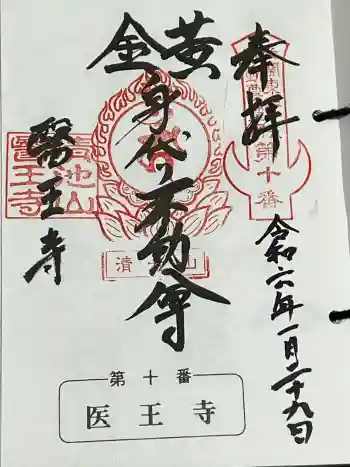 奉拝
第十番
令和六年一月二十九日
黄金
身代り不動尊
清 山
醫王寺
清池山
醫王寺
第十番
医王寺